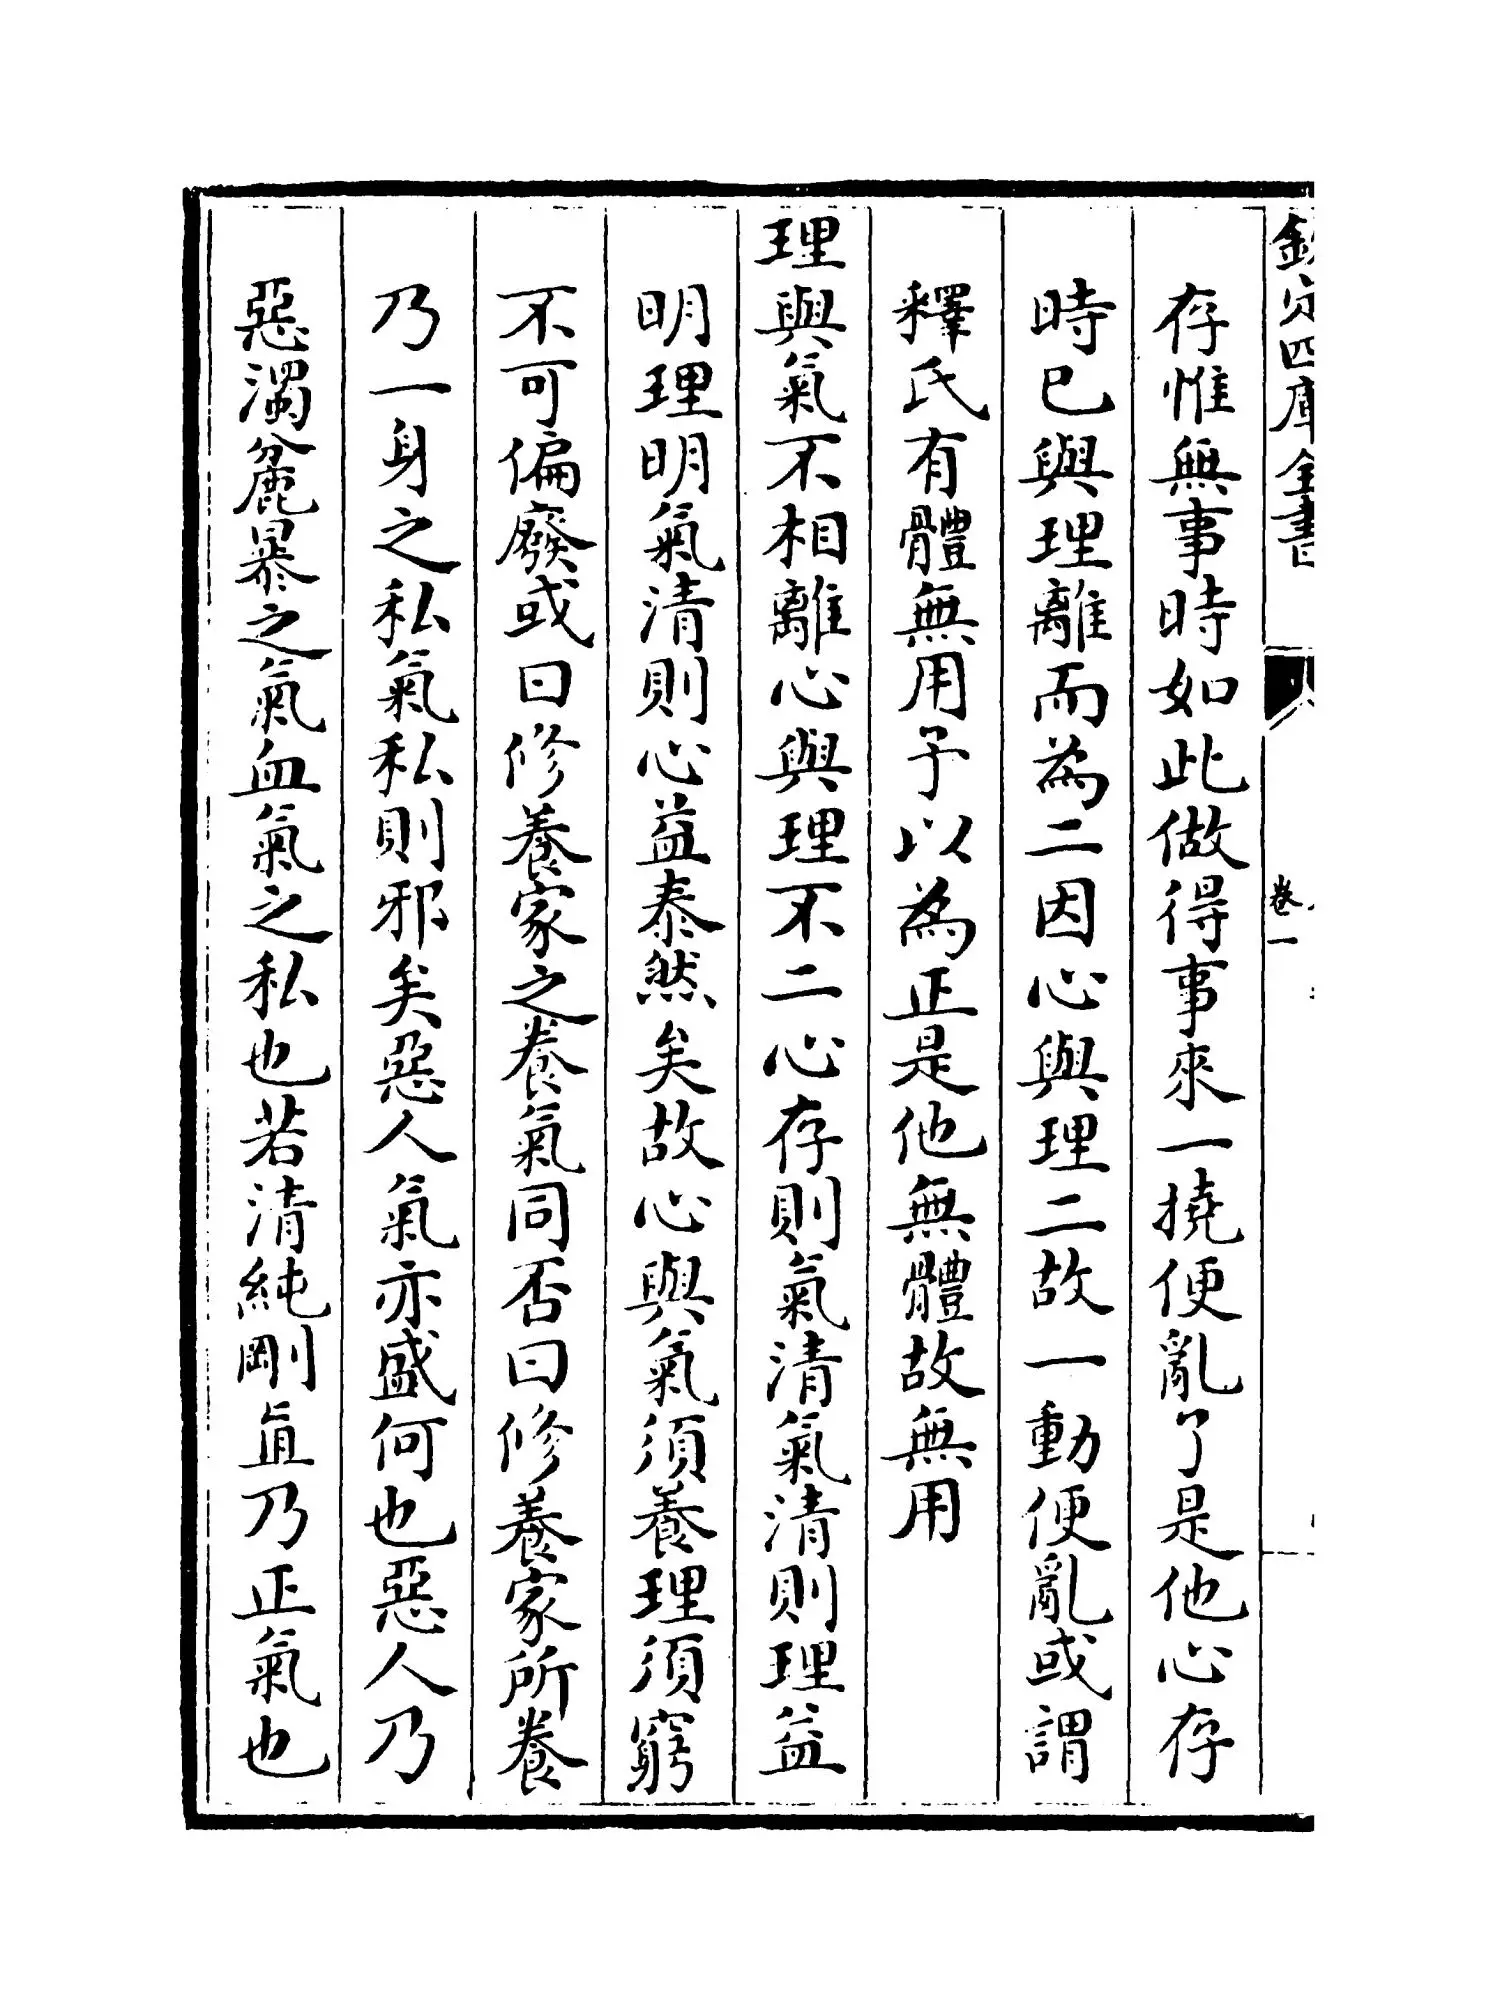 欽定四庫全書
卷一
存惟無事時如此做得事來一撓便亂了是他心存
時已與理離而為二因心與理二故一動便亂或謂
釋氏有體無用予以為正是他無體故無用
理與氣不相離心與理不二心存則氣清氣清則理益
明理明氣清則心益泰然矣故心與氣須養理須窮
不可偏廢或曰修養家之養氣同否曰修養家所養
乃一身之私氣私則邪矣惡人氣亦盛何也惡人乃
惡濁麄暴之氣血氣之私也若清純剛直乃正氣也